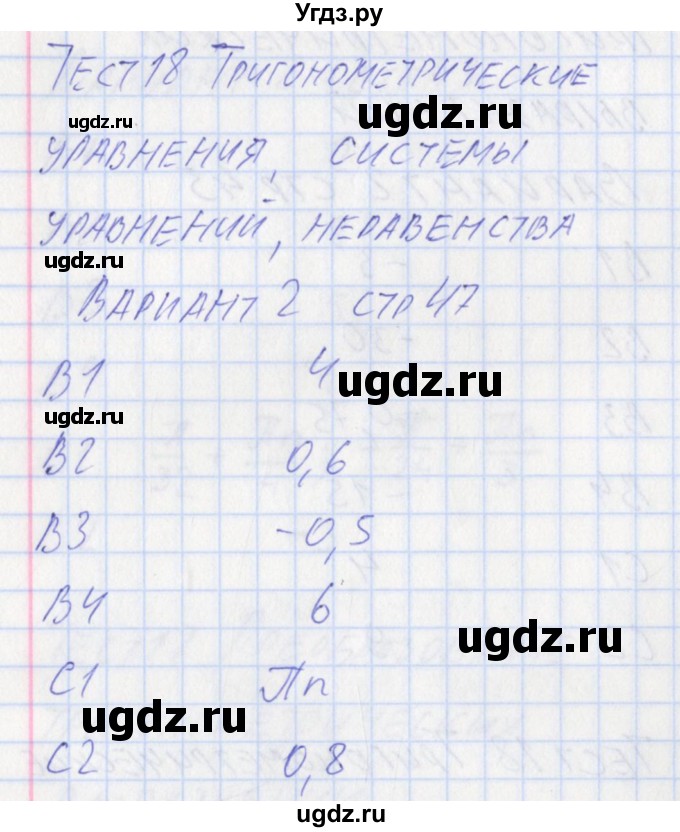 Угдз.ру
Тест 18 Тригонометрические
ugdz.ru
ugdz.ru
уравнения, системы
уравнений, неравенства
ugdz.ru
Вариант 2 стр 47
В1 4
ugdz.ru
ugdz.ru
В2 0,6
В3 -0,5
В4 6
ugdz.ru
С1 Πn
ugdz.ru
С2 0,8
ugdz.ru